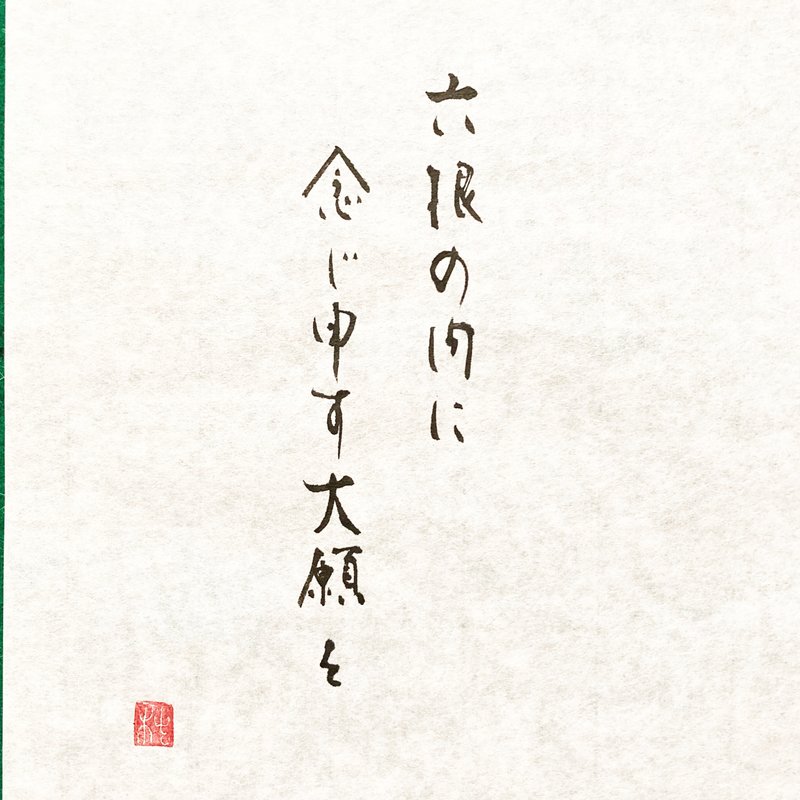 六根の内に
念じ申す大願を